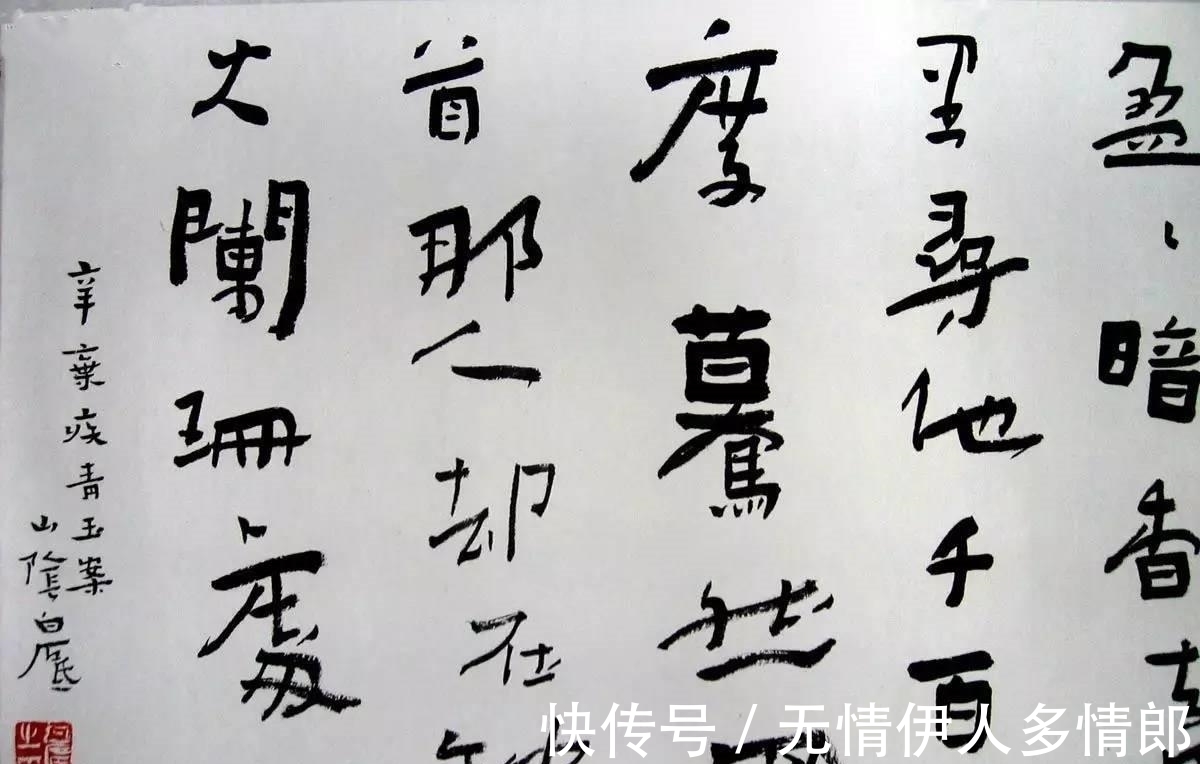 盈、暗香
里尋他千百
度驀然
首那人却在
火闌珊處
辛棄疾青玉案
山陰白
快传号 / 无情伊人多情郎